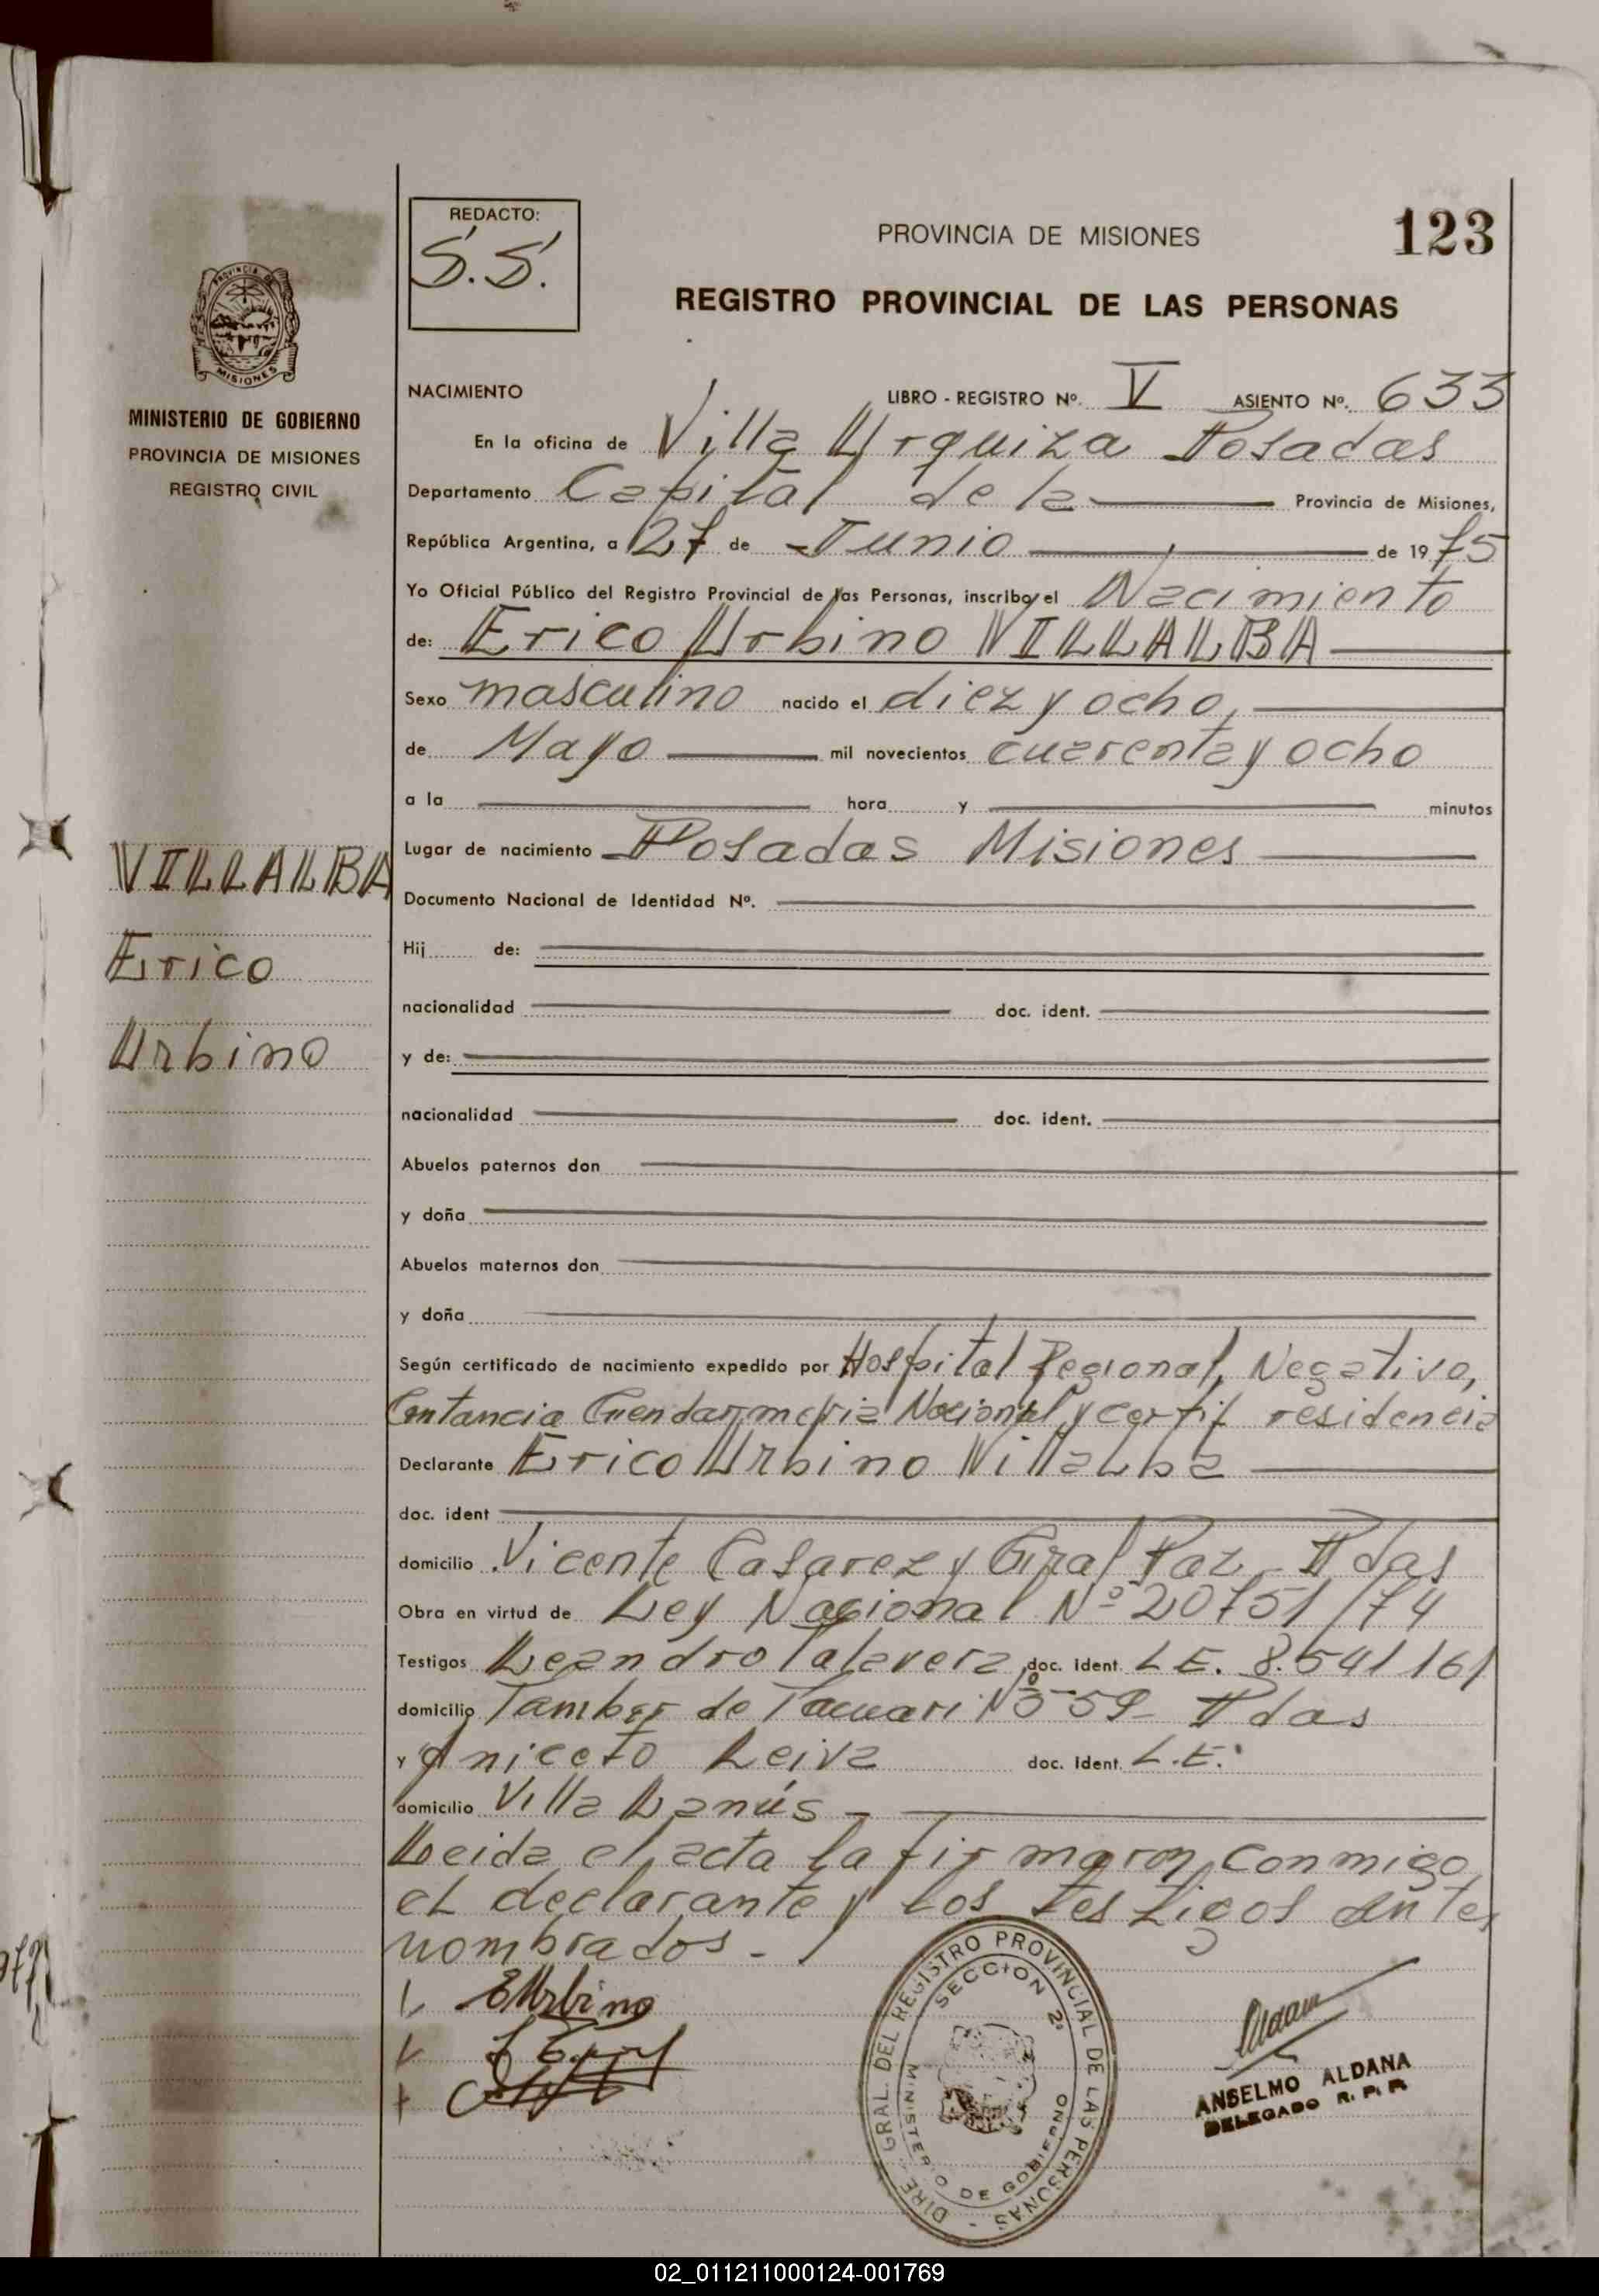 REDACTO:
S.S.
PROVINCIA DE MISIONES
123
REGISTRO PROVINCIAL DE LAS PERSONAS
PROVINCIA DE
MISIONES
MINISTERIO DE GOBIERNO
PROVINCIA DE MISIONES
REGISTRO CIVIL
NACIMIENTO LIBRO - REGISTRO Nº. V ASIENTO Nº. 633
En la oficina de Villa Urquiza Posadas
Departamento Capital de la Provincia de Misiones,
República Argentina, a 27 de Junio de 1975
Yo Oficial Público del Registro Provincial de las Personas, inscribo el Nacimiento
de: Erico Urbino VILLALBA
Sexo masculino nacido el diez y ocho,
de Mayo mil novecientos cuarenta y ocho
a la hora y minutos
Lugar de nacimiento Posadas Misiones
VILLALBA
Erico
Urbino
Documento Nacional de Identidad Nº.
Hij de:
nacionalidad doc. ident.
y de:
nacionalidad doc. ident.
Abuelos paternos don
y doña
Abuelos maternos don
y doña
Según certificado de nacimiento expedido por Hospital Regional, Negativo,
Contancia Guendarmeria Nacional y certif residencia
Declarante Erico Urbino Villalba
doc. ident
domicilio Vicente Casarez y Gral Paz - Pdas
Obra en virtud de Ley Nacional Nº 20751/74
Testigos Leandro Talavera doc. Ident. L E. 8.541161
domicilio Tambor de Tacuari Nº 559- Pdas
y Aniceto Leiva doc. Ident. L.E.
domicilio Villa Lanús -
Leida el acta la firmaron conmigo
el declarante y los testigos antes
nombrados.-
EUrbino
DIRE. GRAL. DEL REGISTRO PROVINCIAL DE LAS PERSONAS -
SECCION 2ª
MINISTERIO DE GOBIERNO
ANSELMO ALDANA
DELEGADO R. P. P.
02_011211000124-001769